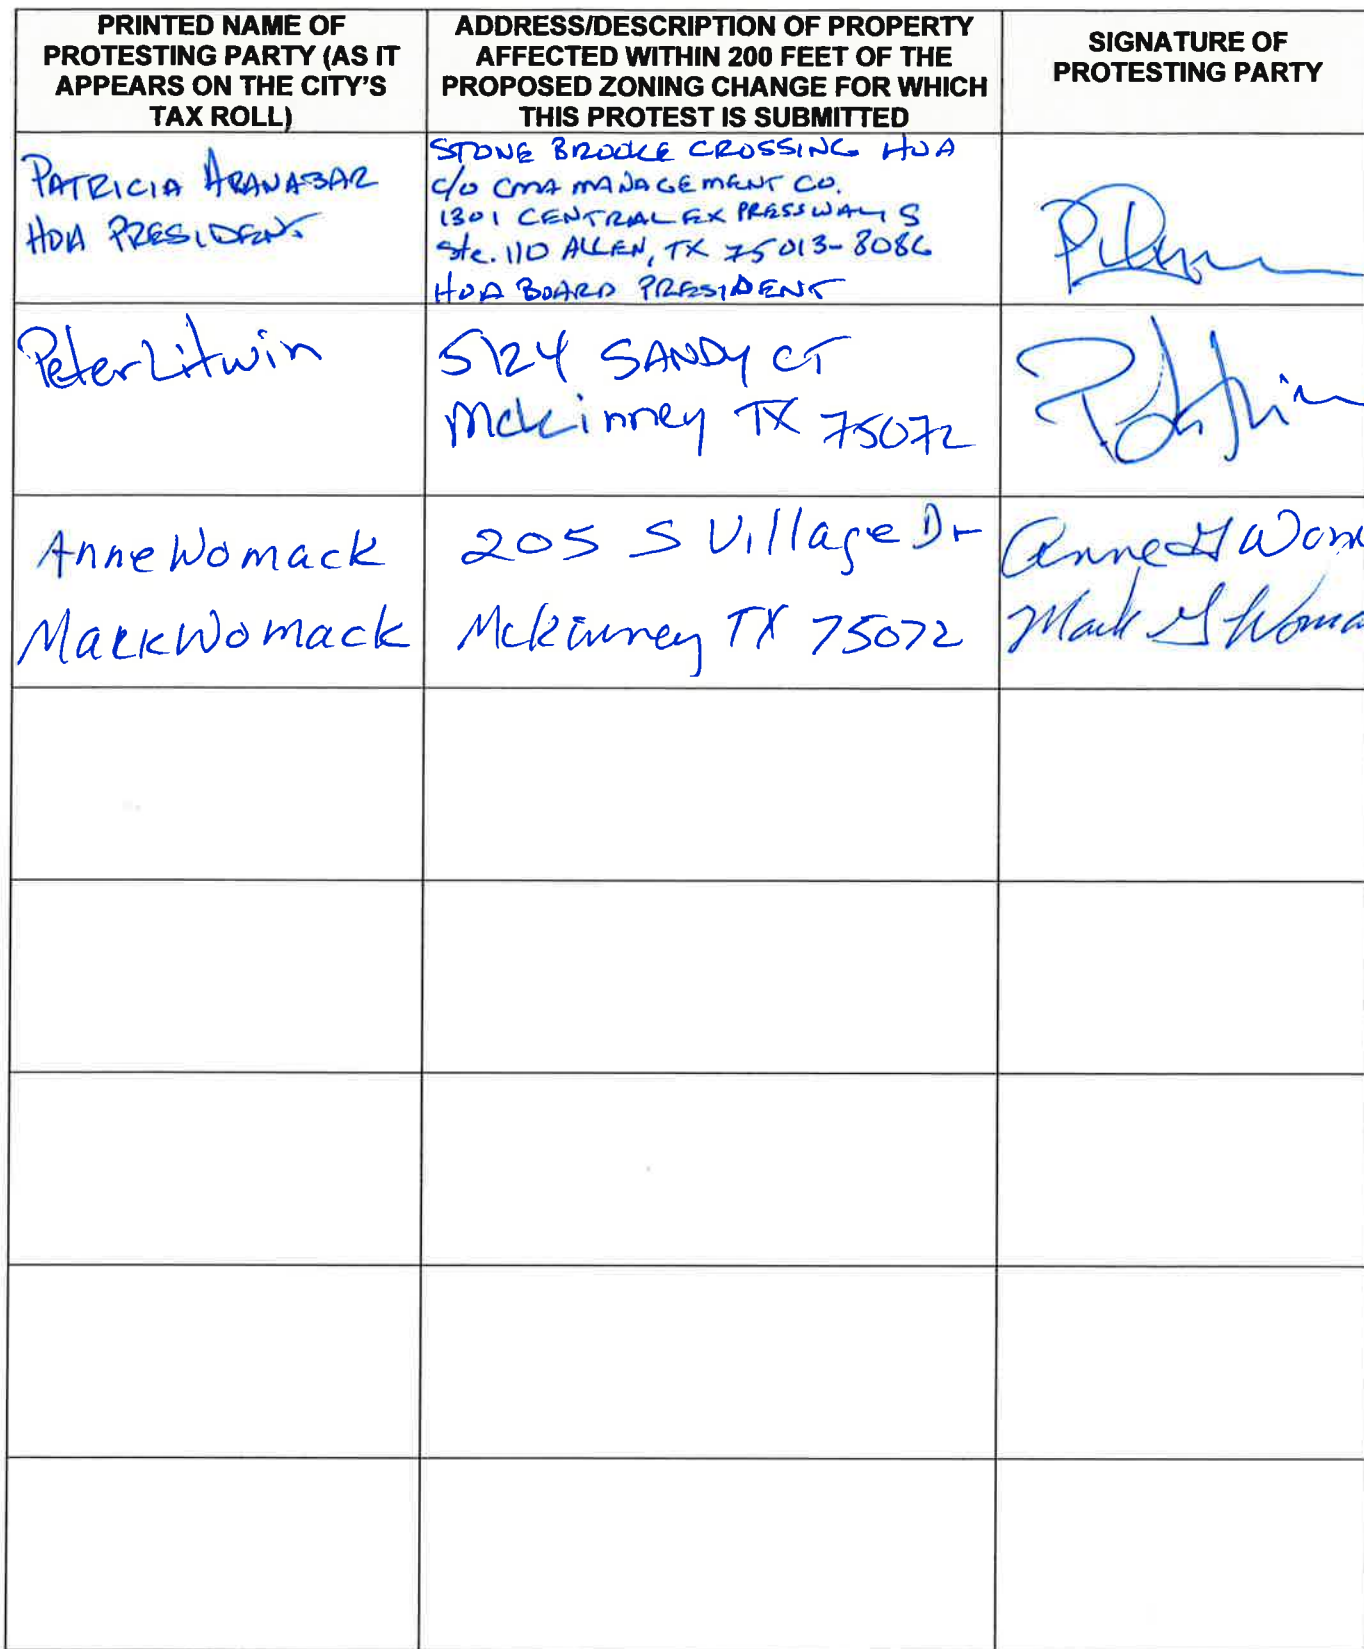 PRINTED NAME OF
PROTESTING PARTY (AS IT
APPEARS ON THE CITY'S
TAX ROLL)
ADDRESS/DESCRIPTION OF PROPERTY
AFFECTED WITHIN 200 FEET OF THE
PROPOSED ZONING CHANGE FOR WHICH
THIS PROTEST IS SUBMITTED
SIGNATURE OF
PROTESTING PARTY
PATRICIA
HOA PRESIDENT
STONE BROOKE CROSSING HOA
c/o CMA MANAGEMENT CO.
1301 CENTRAL EXPRESSWAY S
Ste. 110 ALLEN, TX 75013-8086
HOA BOARD PRESIDENT
Peter Litwin
5124 SANDY CT
McKinney TX 75072
Anne Womack
Mark Womack
205 S Village Dr
McKinney TX 75072
Anne G Wom
Mark G Woma